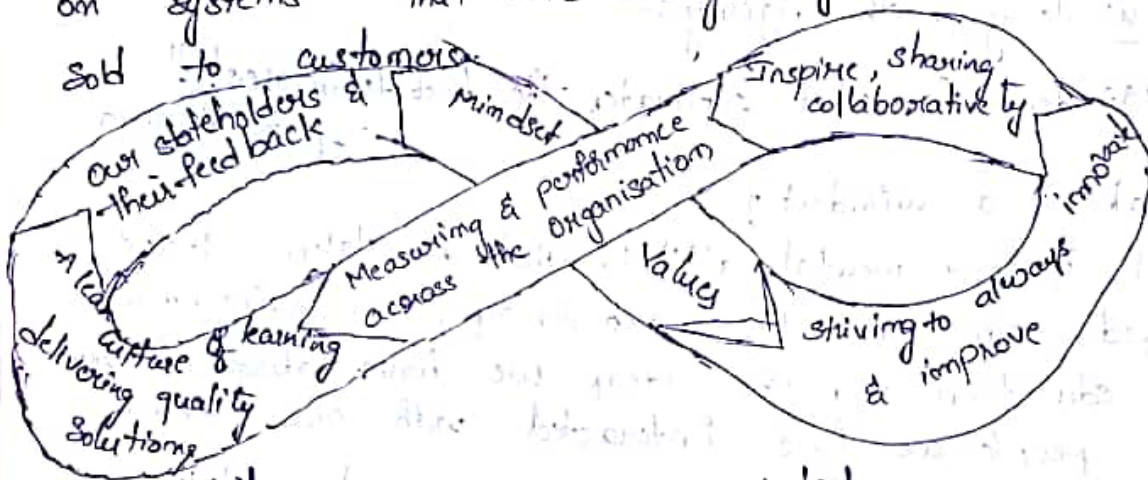 on systems
Sold to customers
Our stakeholders &
their feedback
Mindset
Inspire, sharing
collaborative ty
innovate
Measuring & performance
across the organisation
Values
always
striving to
& improve
A clear
culture of learning
delivering quality
Solutions